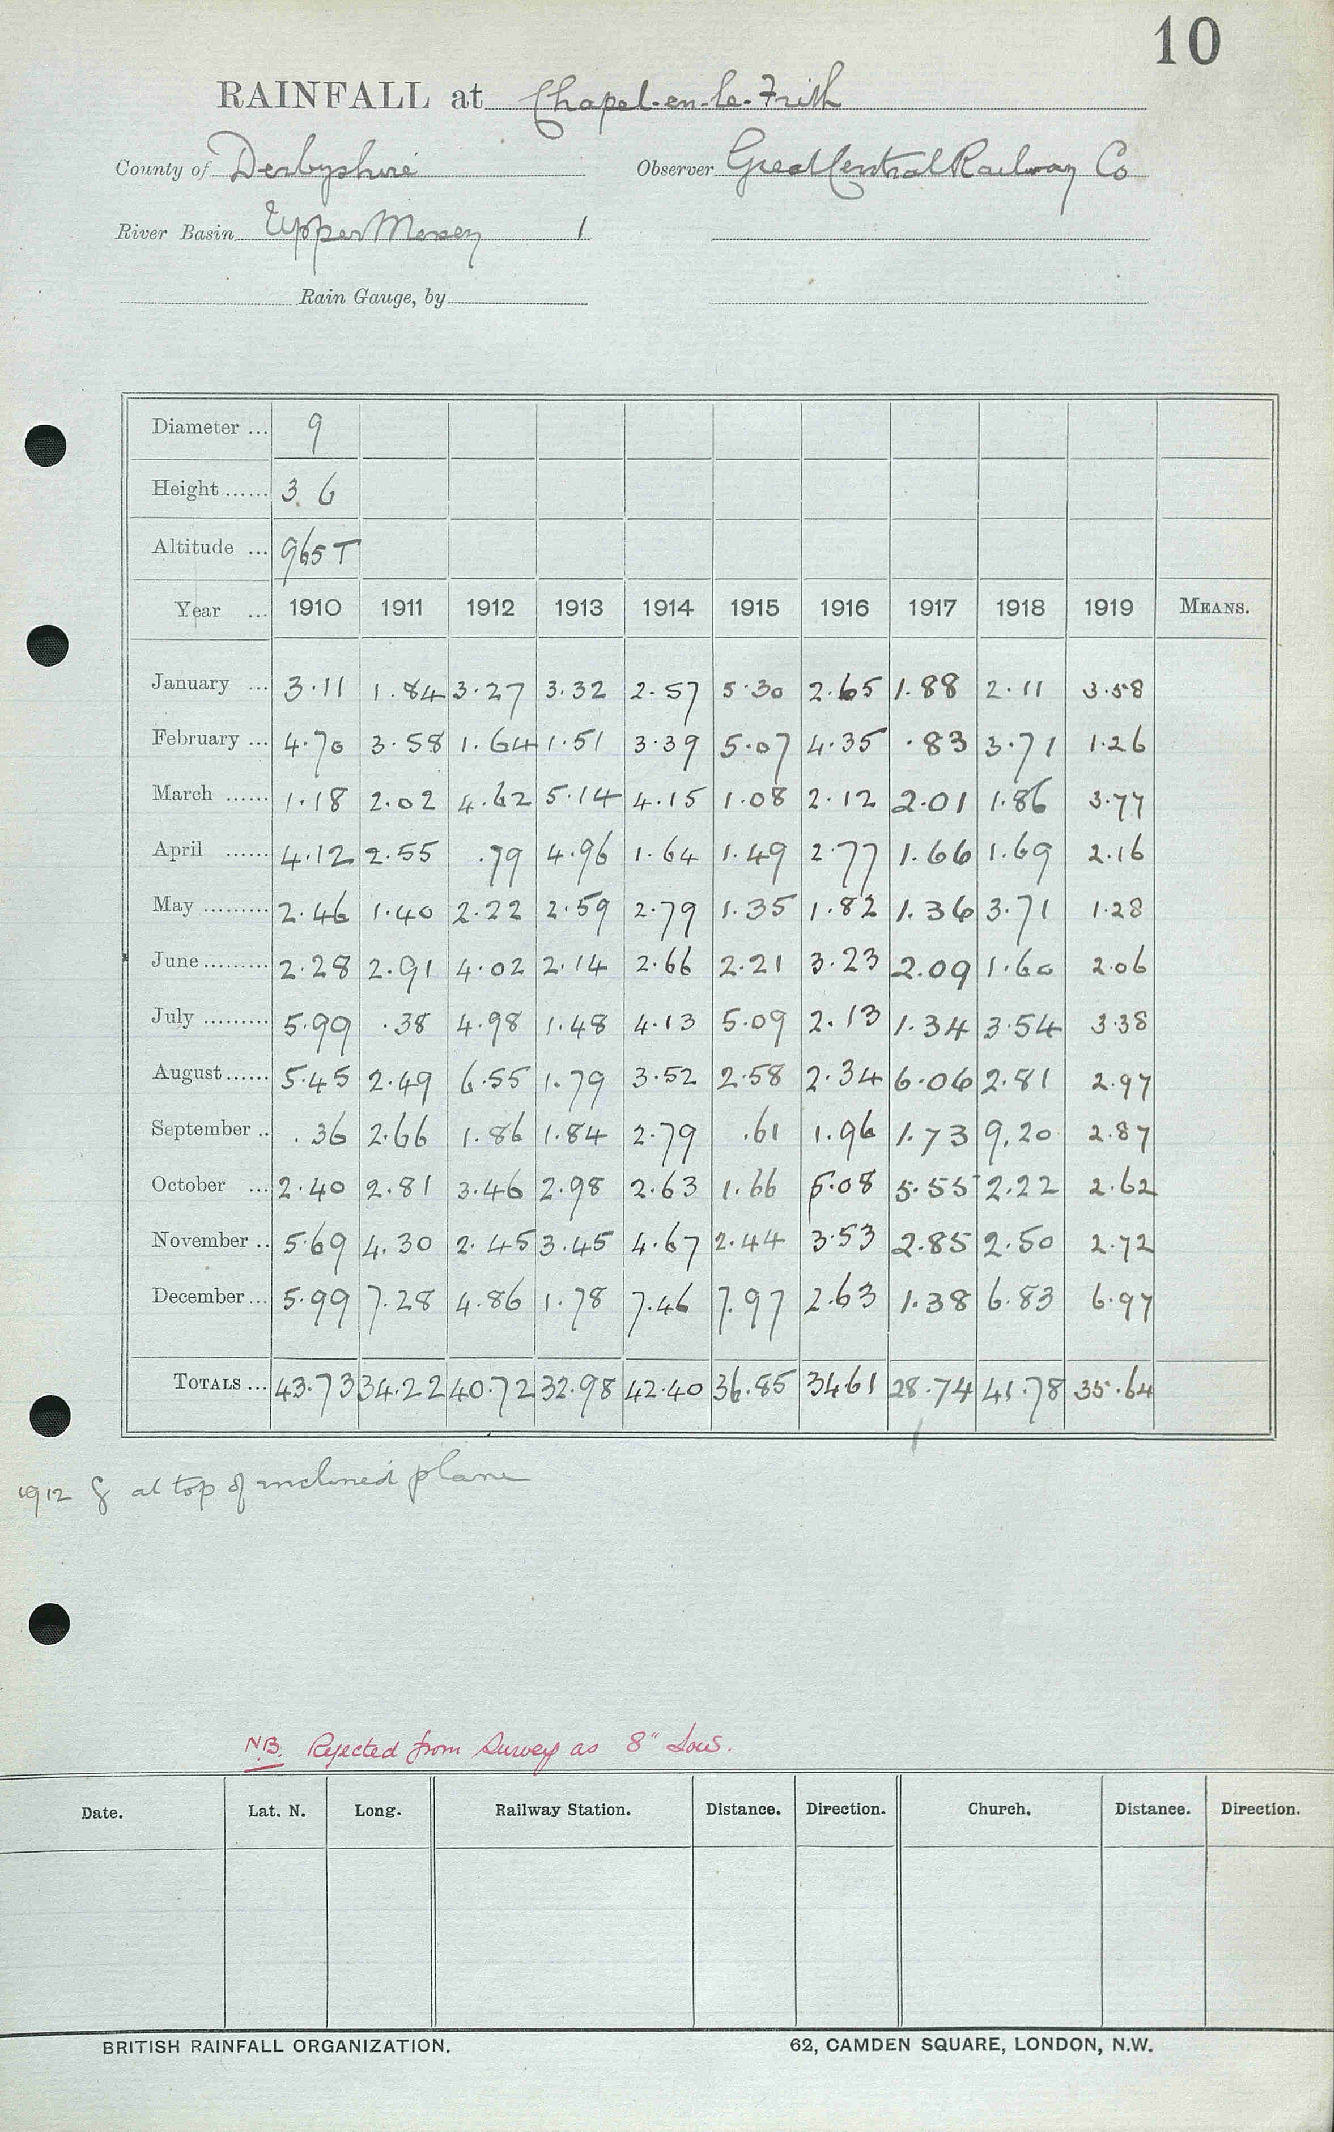 10
RAINFALL at Chapel-en-le-Frith
County of Derbyshire Observer Great Central Railway Co
River Basin Upper Mersey 1
Rain Gauge, by
Diameter ... 9
Height ...... 3 6
Altitude ... 965 T
Year ... 1910 1911 1912 1913 1914 1915 1916 1917 1918 1919 MEANS.
January ... 3.11 1.84 3.27 3.32 2.57 5.30 2.65 1.88 2.11 3.58
February ... 4.70 3.58 1.64 1.51 3.39 5.07 4.35 .83 3.71 1.26
March ...... 1.18 2.02 4.62 5.14 4.15 1.08 2.12 2.01 1.86 3.77
April ...... 4.12 2.55 .79 4.96 1.64 1.49 2.77 1.66 1.69 2.16
May ......... 2.46 1.40 2.22 2.59 2.79 1.35 1.82 1.36 3.71 1.28
June ......... 2.28 2.91 4.02 2.14 2.66 2.21 3.23 2.09 1.60 2.06
July ......... 5.99 .38 4.98 1.48 4.13 5.09 2.13 1.34 3.54 3.38
August ...... 5.45 2.49 6.55 1.79 3.52 2.58 2.34 6.06 2.81 2.97
September .. .36 2.66 1.86 1.84 2.79 .61 1.96 1.73 9.20 2.87
October ... 2.40 2.81 3.46 2.98 2.63 1.66 5.08 5.55 2.22 2.62
November .. 5.69 4.30 2.45 3.45 4.67 2.44 3.53 2.85 2.50 2.72
December ... 5.99 7.28 4.86 1.78 7.46 7.97 2.63 1.38 6.83 6.97
TOTALS ... 43.73 34.22 40.72 32.98 42.40 36.85 34.61 28.74 41.78 35.64
1912 g at top of inclined plane
N.B. Rejected from Survey as 8" low.
Date. Lat. N. Long. Railway Station. Distance. Direction. Church. Distance. Direction.
BRITISH RAINFALL ORGANIZATION. 62, CAMDEN SQUARE, LONDON, N.W.